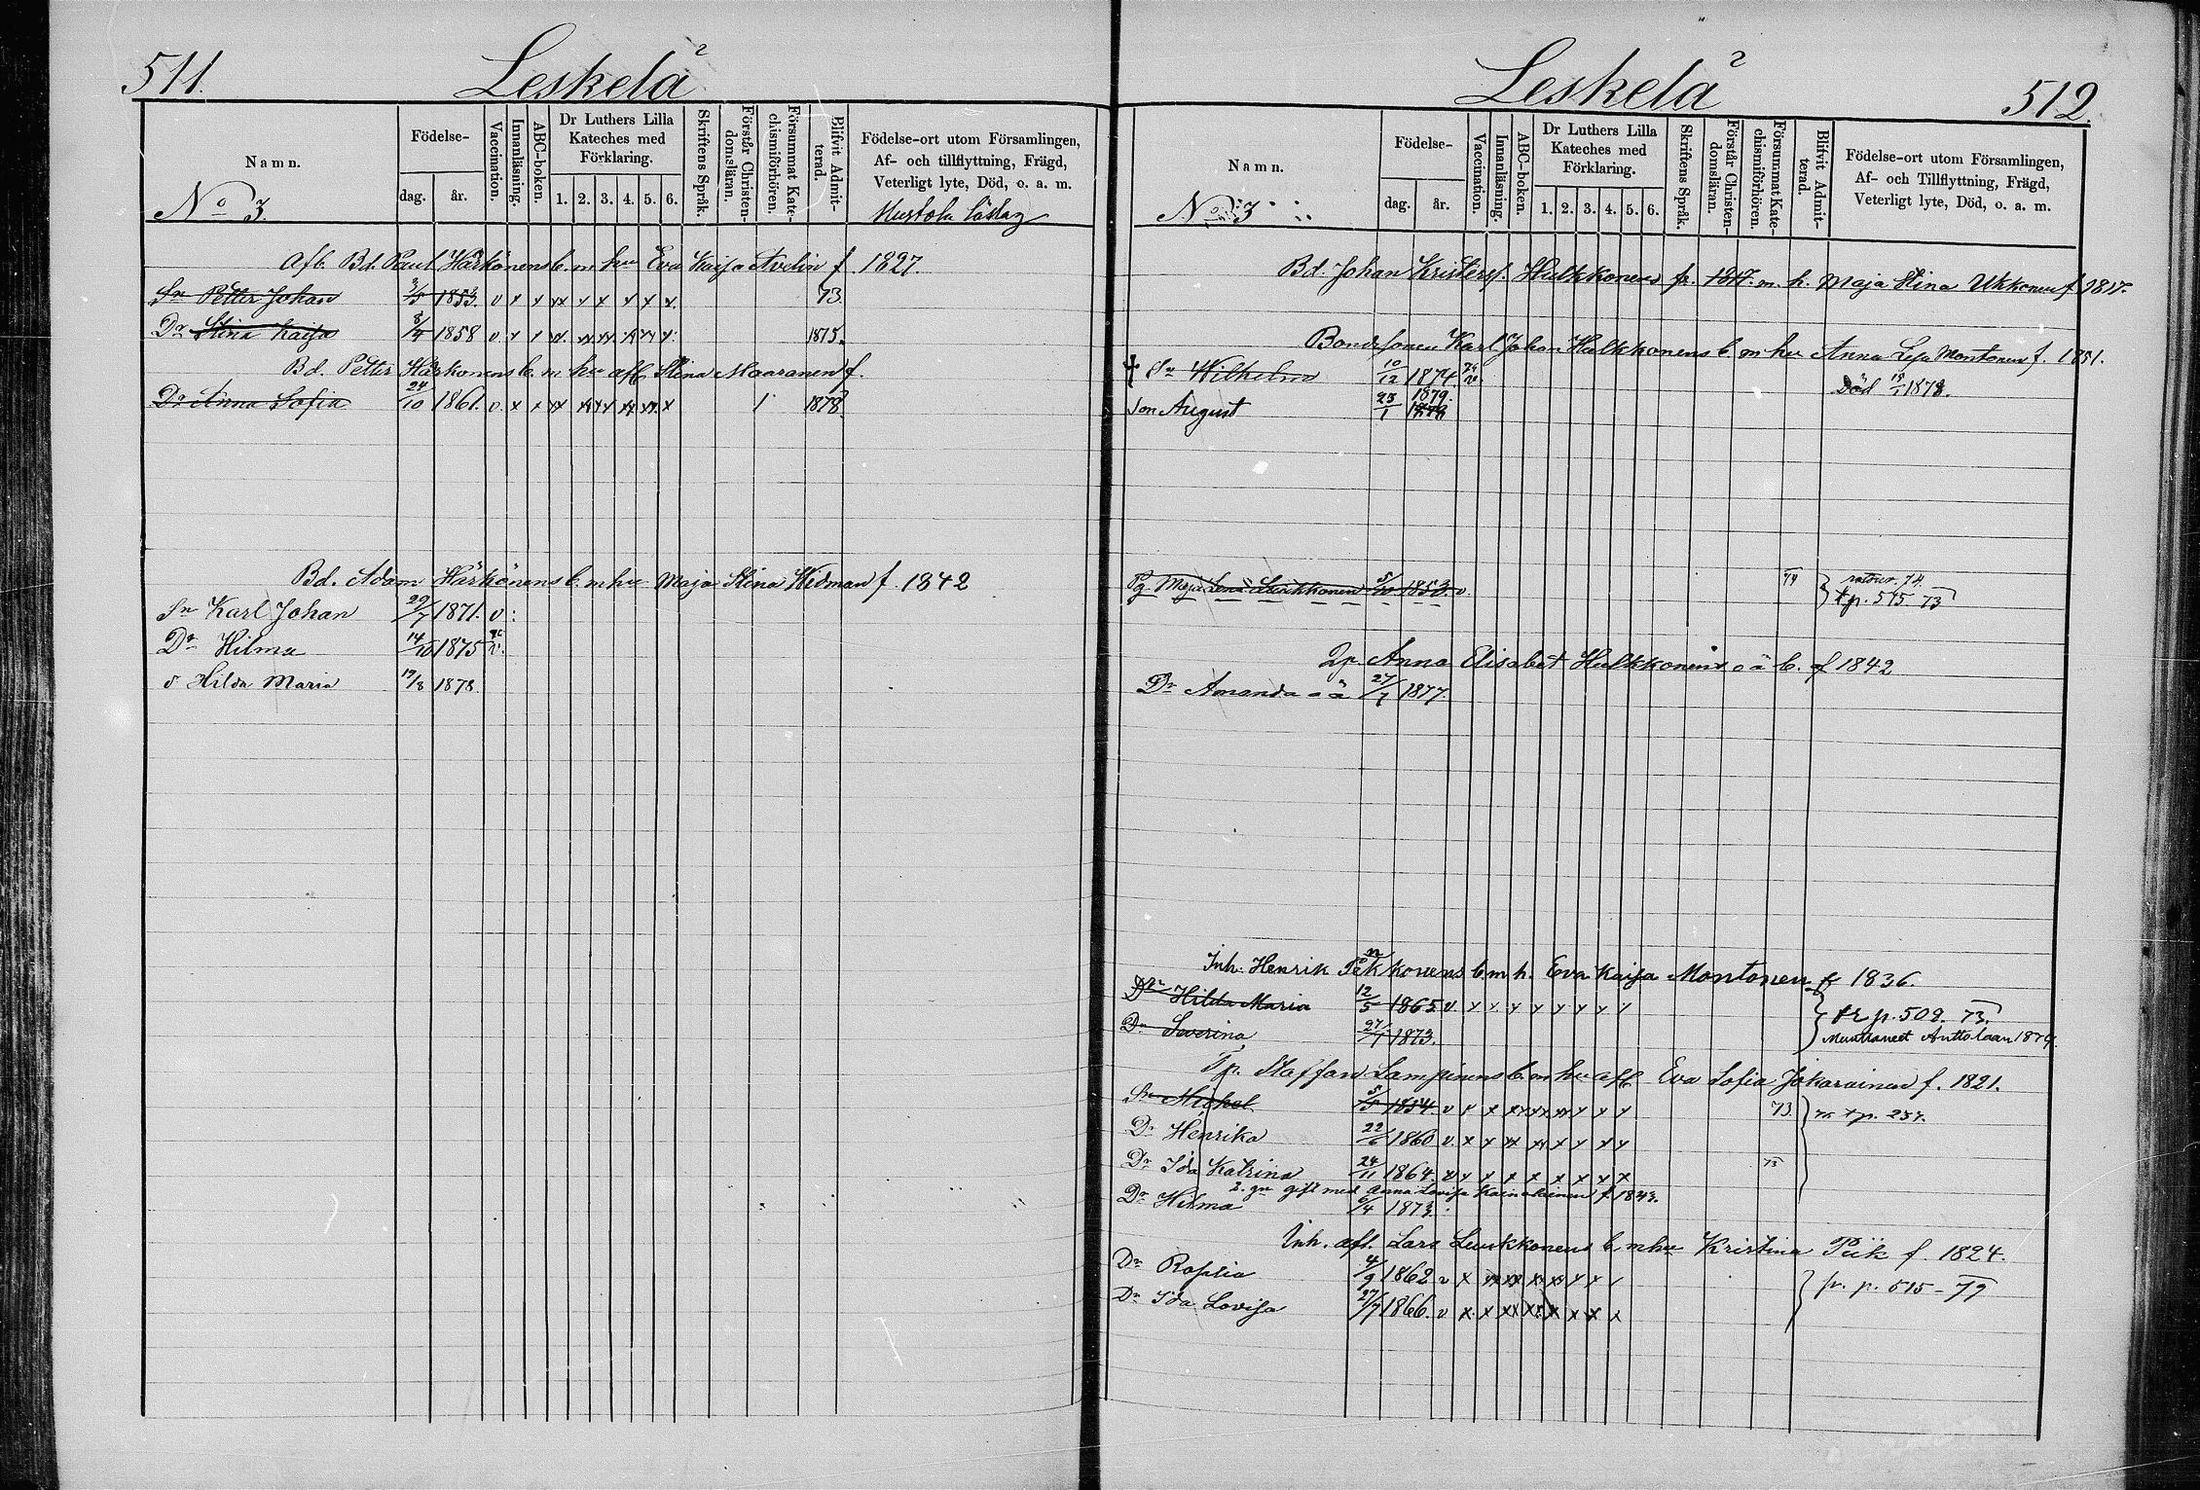 511.
Leskelä
Namn.
Födelse-
dag.
år.
Vaccination.
Innanläsning.
ABC-boken.
Dr Luthers Lilla
Kateches med
Förklaring.
1. 2. 3. 4. 5. 6.
Skriftens Språk.
Förstår Christen-
domsläran.
Försummat Kate-
chismiförhören.
Blifvit Admit-
terad.
Födelse-ort utom Församlingen,
Af- och tillflyttning, Frägd,
Veterligt lyte, Död, o. a. m.
No 3.
Afl. Bd. Paul Härkönens b. m hu Eva Kaisa Avelin f. 1827.
Sn Petter Johan 3/5 1853. v x x xx x x x x x 73.
Dr Stina Kaisa 8/4 1858 v x x 1875.
Bd. Petter Härkönens b. m hu afl. Stina Maaranen f.
Dr Anna Sofia 24/10 1861. v. x x 1 1878.
Bd. Adam Härkönens b. m hu Maja Stina Hedman f 1842
Sn Karl Johan 29/7 1871. v.
Dr Hilma 14/10 1875 v.
d Hilda Maria 19/3 1878.
Leskelä
512.
Namn.
Födelse-
dag.
år.
Vaccination.
Innanläsning.
ABC-boken.
Dr Luthers Lilla
Kateches med
Förklaring.
1. 2. 3. 4. 5. 6.
Skriftens Språk.
Förstår Christen-
domsläran.
Försummat Kate-
chismiförhören.
Blifvit Admit-
terad.
Födelse-ort utom Församlingen,
Af- och Tillflyttning, Frägd,
Veterligt lyte, Död, o. a. m.
No 3
Bd. Johan Kristersf. Hulkkonens fr. 1817. m. h. Maja Stina Ukkonen f 1817.
Bondesonen Karl Johan Hulkkonens b. m hu Anna Lisa Montonen f. 1851.
Sn Wilhelm 10/12 1874 v Död 1878.
1879.
son August 23/1 1878
Pg. Maja Lena Luukkonen 1853. v. 74 retour. 74.
t p. 515. 73
Anna Elisabet Hulkkonens o ä b. f 1842
Dr Amanda o ä 27/7 1877.
Inh. Henrik Pekkonens b. m h. Eva Kaisa Montonen f 1836.
Dr Hilda Maria 12/5 1865. v. x x x x x x x x fr p. 509. 73.
Dr Severina 27/7 1873. Muuttaneet Anttolaan 1879.
Staffan Lampinens b. m hu afl. Eva Sofia Jokarainen f. 1821.
Sn Mickel 5/5 1854. 73. t p. 257.
Dr Henrika 22/6 1860 v. x x
Dr Ida Katrina 24/11 1864. 73
2. gn gift med Anna Lovisa Kainulainen f. 1843.
Dr Hilma 6/4 1873.
Inh. afl. Lars Luukkonens b. m hu Kristina Piik f. 1824.
Dr Rosalia 4/9 1862 v x fr. p. 515 - 79
Dr Ida Lovisa 27/7 1866. v x. x